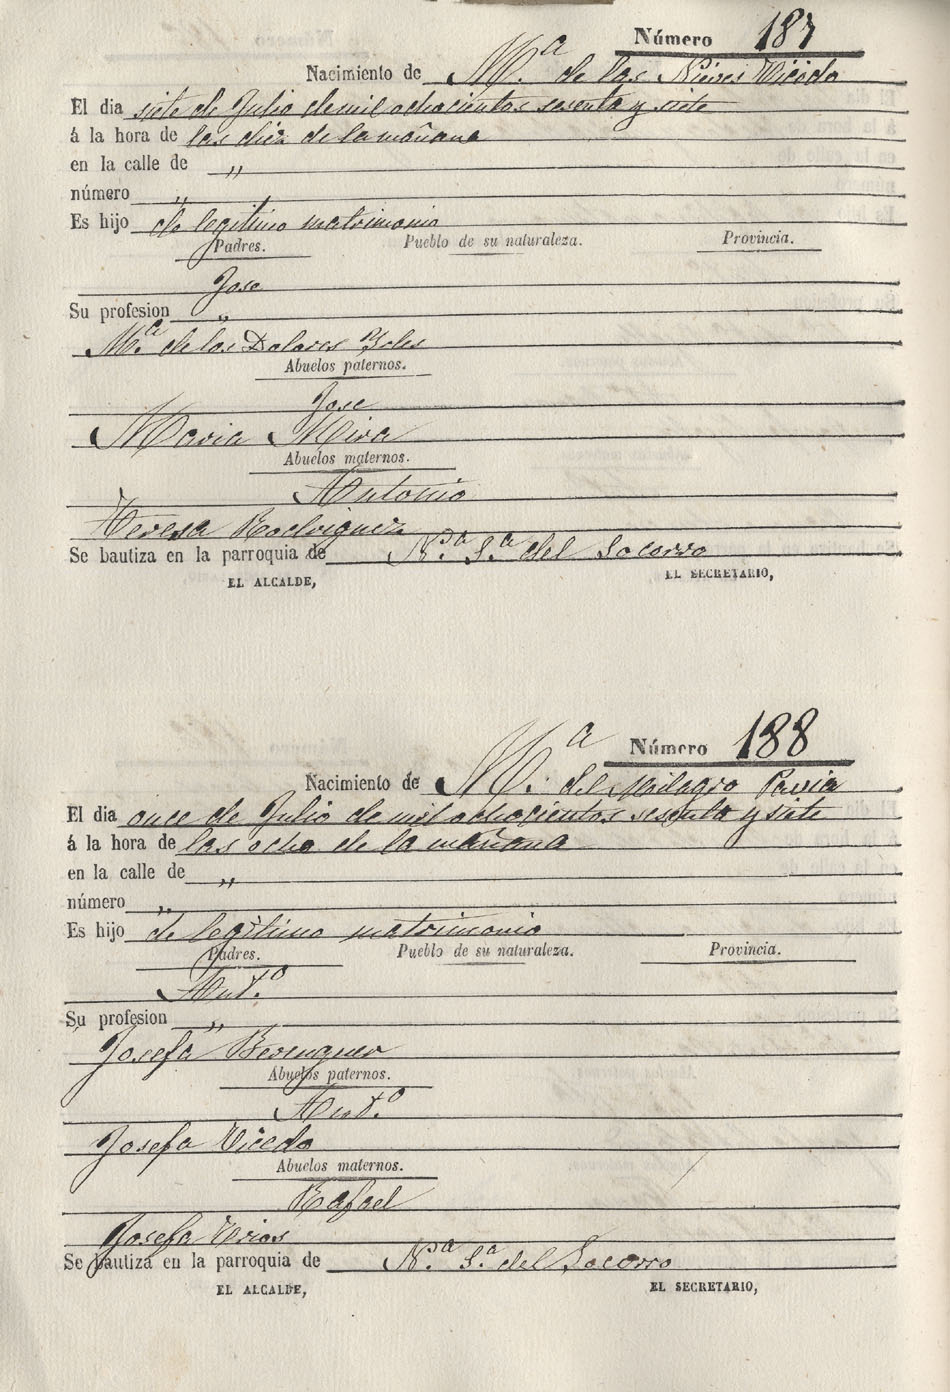 Número 187
Nacimiento de M.ª de las Nieves Vicedo
El dia siete de Julio de mil ochocientos sesenta y siete
á la hora de las diez de la mañana
en la calle de „
número „
Es hijo de legitimo matrimonio
Padres. Pueblo de su naturaleza. Provincia.
Jose
Su profesion „
M.ª de los Dolores
Abuelos paternos.
Jose
Maria Mira
Abuelos maternos.
Antonio
Teresa Rodriguez
Se bautiza en la parroquia de N.ª S.ª del Socorro
EL ALCALDE, EL SECRETARIO,
Número 188
Nacimiento de M.ª del Milagro Pavia
El dia once de Julio de mil ochocientos sesenta y siete
á la hora de las ocho de la mañana
en la calle de „
número „
Es hijo de legitimo matrimonio
Padres. Pueblo de su naturaleza. Provincia.
Ant.º
Su profesion „
Josefa Berenguer
Abuelos paternos.
Ant.º
Josefa Vicedo
Abuelos maternos.
Rafael
Josefa Verios
Se bautiza en la parroquia de N.ª S.ª del Socorro
EL ALCALDE, EL SECRETARIO,